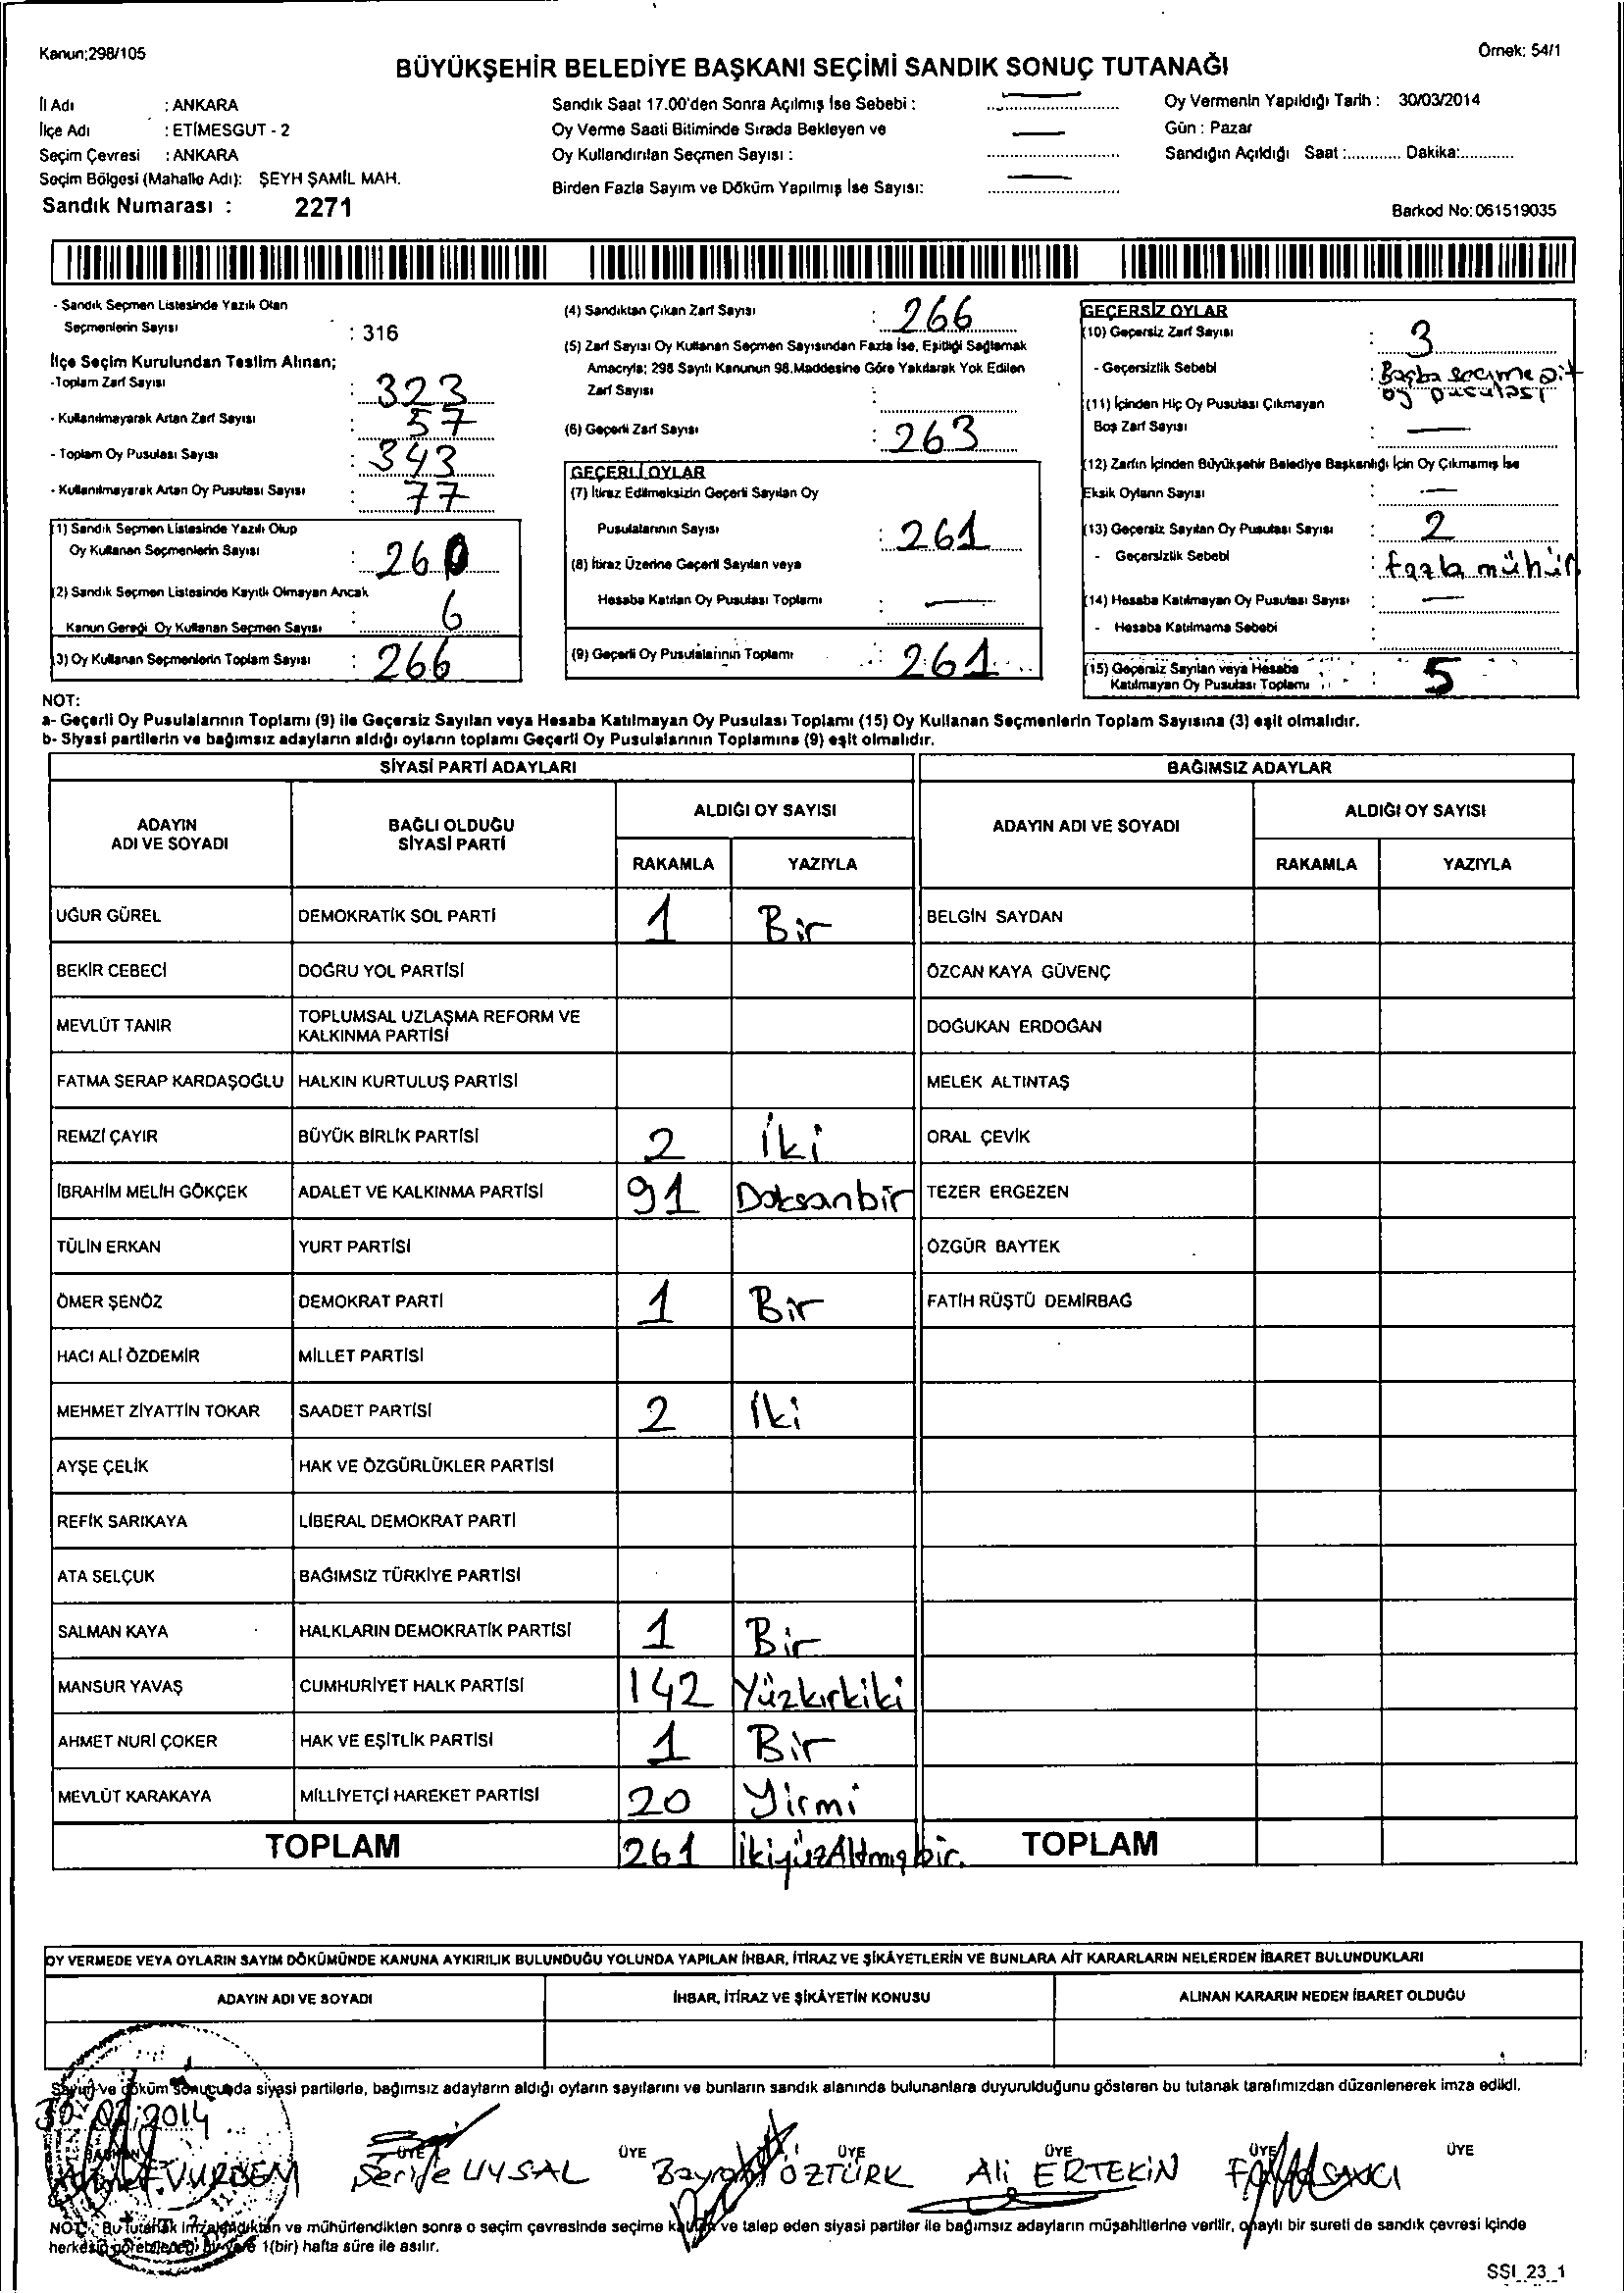 Kanun;298/105
Örnek: 54/1
BÜYÜKŞEHİR BELEDİYE BAŞKANI SEÇİMİ SANDIK SONUÇ TUTANAĞI
İl Adı : ANKARA
İlçe Adı : ETİMESGUT - 2
Seçim Çevresi : ANKARA
Seçim Bölgesi (Mahalle Adı): ŞEYH ŞAMİL MAH.
Sandık Numarası : 2271
Sandık Saat 17.00'den Sonra Açılmış İse Sebebi :
Oy Verme Saati Bitiminde Sırada Bekleyen ve
Oy Kullandırılan Seçmen Sayısı :
Birden Fazla Sayım ve Döküm Yapılmış İse Sayısı:
Oy Vermenin Yapıldığı Tarih : 30/03/2014
Gün : Pazar
Sandığın Açıldığı Saat :............ Dakika:............
Barkod No:061519035
- Sandık Seçmen Listesinde Yazılı Olan
Seçmenlerin Sayısı : 316
İlçe Seçim Kurulundan Teslim Alınan;
-Toplam Zarf Sayısı : 323
- Kullanılmayarak Artan Zarf Sayısı : 57
- Toplam Oy Pusulası Sayısı : 343
- Kullanılmayarak Artan Oy Pusulası Sayısı : 77
(1) Sandık Seçmen Listesinde Yazılı Olup
Oy Kullanan Seçmenlerin Sayısı : 260
(2) Sandık Seçmen Listesinde Kayıtlı Olmayan Ancak
Kanun Gereği Oy Kullanan Seçmen Sayısı : 6
(3) Oy Kullanan Seçmenlerin Toplam Sayısı : 266
(4) Sandıktan Çıkan Zarf Sayısı : 266
(5) Zarf Sayısı Oy Kullanan Seçmen Sayısından Fazla İse, Eşitliği Sağlamak
Amacıyla; 298 Sayılı Kanunun 98.Maddesine Göre Yakılarak Yok Edilen
Zarf Sayısı :
(6) Geçerli Zarf Sayısı : 263
GEÇERLİ OYLAR
(7) İtiraz Edilmeksizin Geçerli Sayılan Oy
Pusulalarının Sayısı : 261
(8) İtiraz Üzerine Geçerli Sayılan veya
Hesaba Katılan Oy Pusulası Toplamı : —
(9) Geçerli Oy Pusulalarının Toplamı : 261
GEÇERSİZ OYLAR
(10) Geçersiz Zarf Sayısı : 3
- Geçersizlik Sebebi : Başba seçime ait
oy pusulası
(11) İçinden Hiç Oy Pusulası Çıkmayan
Boş Zarf Sayısı : —
(12) Zarfın İçinden Büyükşehir Belediye Başkanlığı İçin Oy Çıkmamış İse
Eksik Oyların Sayısı : —
(13) Geçersiz Sayılan Oy Pusulası Sayısı : 2
- Geçersizlik Sebebi : fazla mühür
(14) Hesaba Katılmayan Oy Pusulası Sayısı : —
- Hesaba Katılmama Sebebi :
(15) Geçersiz Sayılan veya Hesaba
Katılmayan Oy Pusulası Toplamı : 5
NOT:
a- Geçerli Oy Pusulalarının Toplamı (9) ile Geçersiz Sayılan veya Hesaba Katılmayan Oy Pusulası Toplamı (15) Oy Kullanan Seçmenlerin Toplam Sayısına (3) eşit olmalıdır.
b- Siyasi partilerin ve bağımsız adayların aldığı oyların toplamı Geçerli Oy Pusulalarının Toplamına (9) eşit olmalıdır.
SİYASİ PARTİ ADAYLARI BAĞIMSIZ ADAYLAR
ADAYIN ADI VE SOYADI BAĞLI OLDUĞU SİYASİ PARTİ ALDIĞI OY SAYISI ADAYIN ADI VE SOYADI ALDIĞI OY SAYISI
RAKAMLA YAZIYLA RAKAMLA YAZIYLA
UĞUR GÜREL DEMOKRATİK SOL PARTİ 1 Bir BELGİN SAYDAN
BEKİR CEBECİ DOĞRU YOL PARTİSİ ÖZCAN KAYA GÜVENÇ
MEVLÜT TANIR TOPLUMSAL UZLAŞMA REFORM VE KALKINMA PARTİSİ DOĞUKAN ERDOĞAN
FATMA SERAP KARDAŞOĞLU HALKIN KURTULUŞ PARTİSİ MELEK ALTINTAŞ
REMZİ ÇAYIR BÜYÜK BİRLİK PARTİSİ 2 İki ORAL ÇEVİK
İBRAHİM MELİH GÖKÇEK ADALET VE KALKINMA PARTİSİ 91 Doksanbir TEZER ERGEZEN
TÜLİN ERKAN YURT PARTİSİ ÖZGÜR BAYTEK
ÖMER ŞENÖZ DEMOKRAT PARTİ 1 Bir FATİH RÜŞTÜ DEMİRBAĞ
HACI ALİ ÖZDEMİR MİLLET PARTİSİ
MEHMET ZİYATTİN TOKAR SAADET PARTİSİ 2 İki
AYŞE ÇELİK HAK VE ÖZGÜRLÜKLER PARTİSİ
REFİK SARIKAYA LİBERAL DEMOKRAT PARTİ
ATA SELÇUK BAĞIMSIZ TÜRKİYE PARTİSİ
SALMAN KAYA HALKLARIN DEMOKRATİK PARTİSİ 1 Bir
MANSUR YAVAŞ CUMHURİYET HALK PARTİSİ 142 Yüzkırkiki
AHMET NURİ ÇOKER HAK VE EŞİTLİK PARTİSİ 1 Bir
MEVLÜT KARAKAYA MİLLİYETÇİ HAREKET PARTİSİ 20 Yirmi
TOPLAM 261 İkiyüzAltmışbir. TOPLAM
OY VERMEDE VEYA OYLARIN SAYIM DÖKÜMÜNDE KANUNA AYKIRILIK BULUNDUĞU YOLUNDA YAPILAN İHBAR, İTİRAZ VE ŞİKÂYETLERİN VE BUNLARA AİT KARARLARIN NELERDEN İBARET BULUNDUKLARI
ADAYIN ADI VE SOYADI İHBAR, İTİRAZ VE ŞİKÂYETİN KONUSU ALINAN KARARIN NEDEN İBARET OLDUĞU
Sayım ve döküm sonucunda siyasi partilerle, bağımsız adayların aldığı oyların sayılarını ve bunların sandık alanında bulunanlara duyurulduğunu gösteren bu tutanak tarafımızdan düzenlenerek imza edildi.
ÜYE ÜYE ÜYE ÜYE ÜYE ÜYE
Şerife UYSAL ÖZTÜRK Ali ERTEKİN
NOT: Bu tutanak imzalandıktan ve mühürlendikten sonra o seçim çevresinde seçime katılan ve talep eden siyasi partiler ile bağımsız adayların müşahitlerine verilir, onaylı bir sureti de sandık çevresi içinde
herkesin görebileceği bir yere 1(bir) hafta süre ile asılır.
SSI_23_1